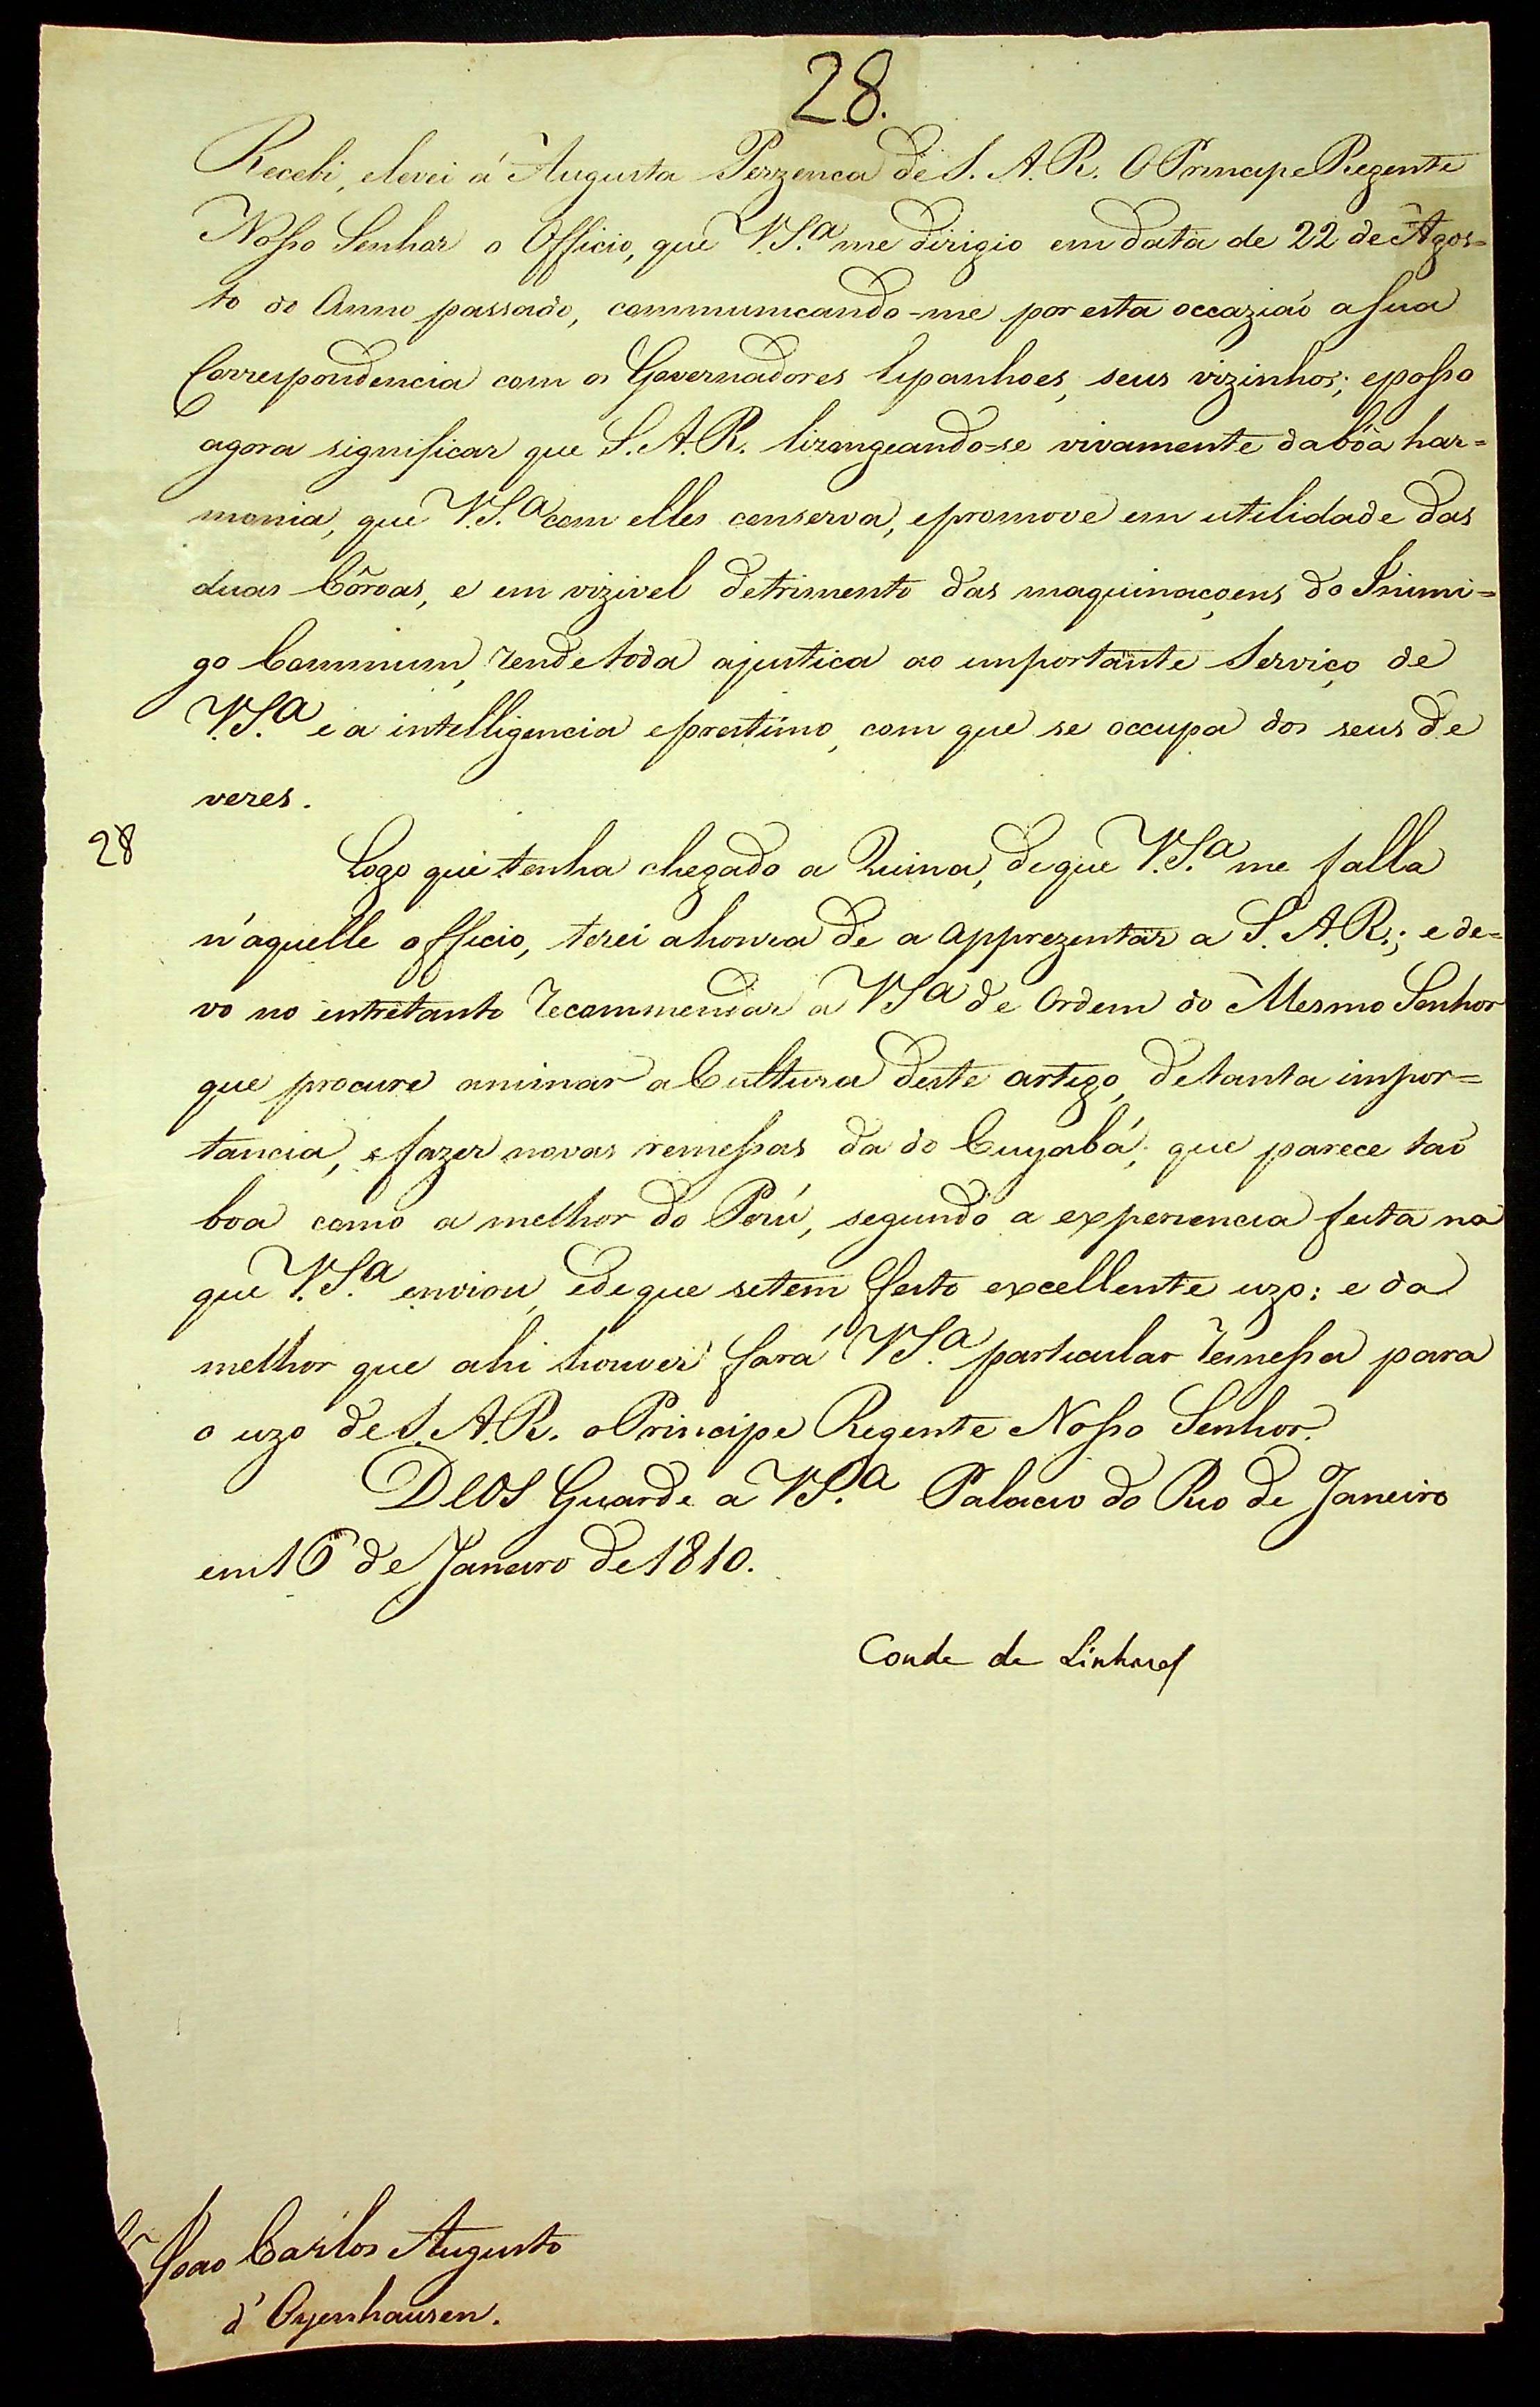 28.
Recebi, elevei á Augusta Perzenca de S. A. R. O Principe Regente
Nosso Senhor o Officio, que V. S.ª me dirigio em data de 22 de Agos=
to do Anno passado, communicando-me por esta occaziaõ a sua
Correspondencia com os Governadores Espanhoes, seus vizinhos; e posso
agora significar que S. A. R. lizongeando-se vivamente da bôa har=
monia, que V. S.ª com elles conserva, e promove em utilidade das
duas Côroas, e em vizivel detrimento das maquinaçoens do Inimi=
go Commum, rende toda a justica ao importante Serviço de
V. S.ª e a intelligencia e prestimo, com que se occupa dos seus de
veres.
28
Logo que tenha chegado a Quina, de que V. S.ª me falla
n'aquelle officio, terei a honra de a apprezentar a S. A. R.; e de=
vo no entretanto recommendar a V S.ª de Ordem do Mesmo Senhor
que procure animar a Cultura deste artigo, de tanta impor=
tancia, e fazer novas remessas da do Cuyabá; que parece taõ
boa como a melhor do Perú, segundo a experiencia feita na
que V. S.ª enviou, e de que se tem feito excellente uzo: e da
melhor que ahi houver fará V S.ª particular remessa para
o uzo de S. A. R. o Principe Regente Nosso Senhor.
DEOS Guarde a V S.ª Palacio do Rio de Janeiro
em 16 de Janeiro de 1810.
Conde de Linhares
João Carlos Augusto
d'Oyenhausen.